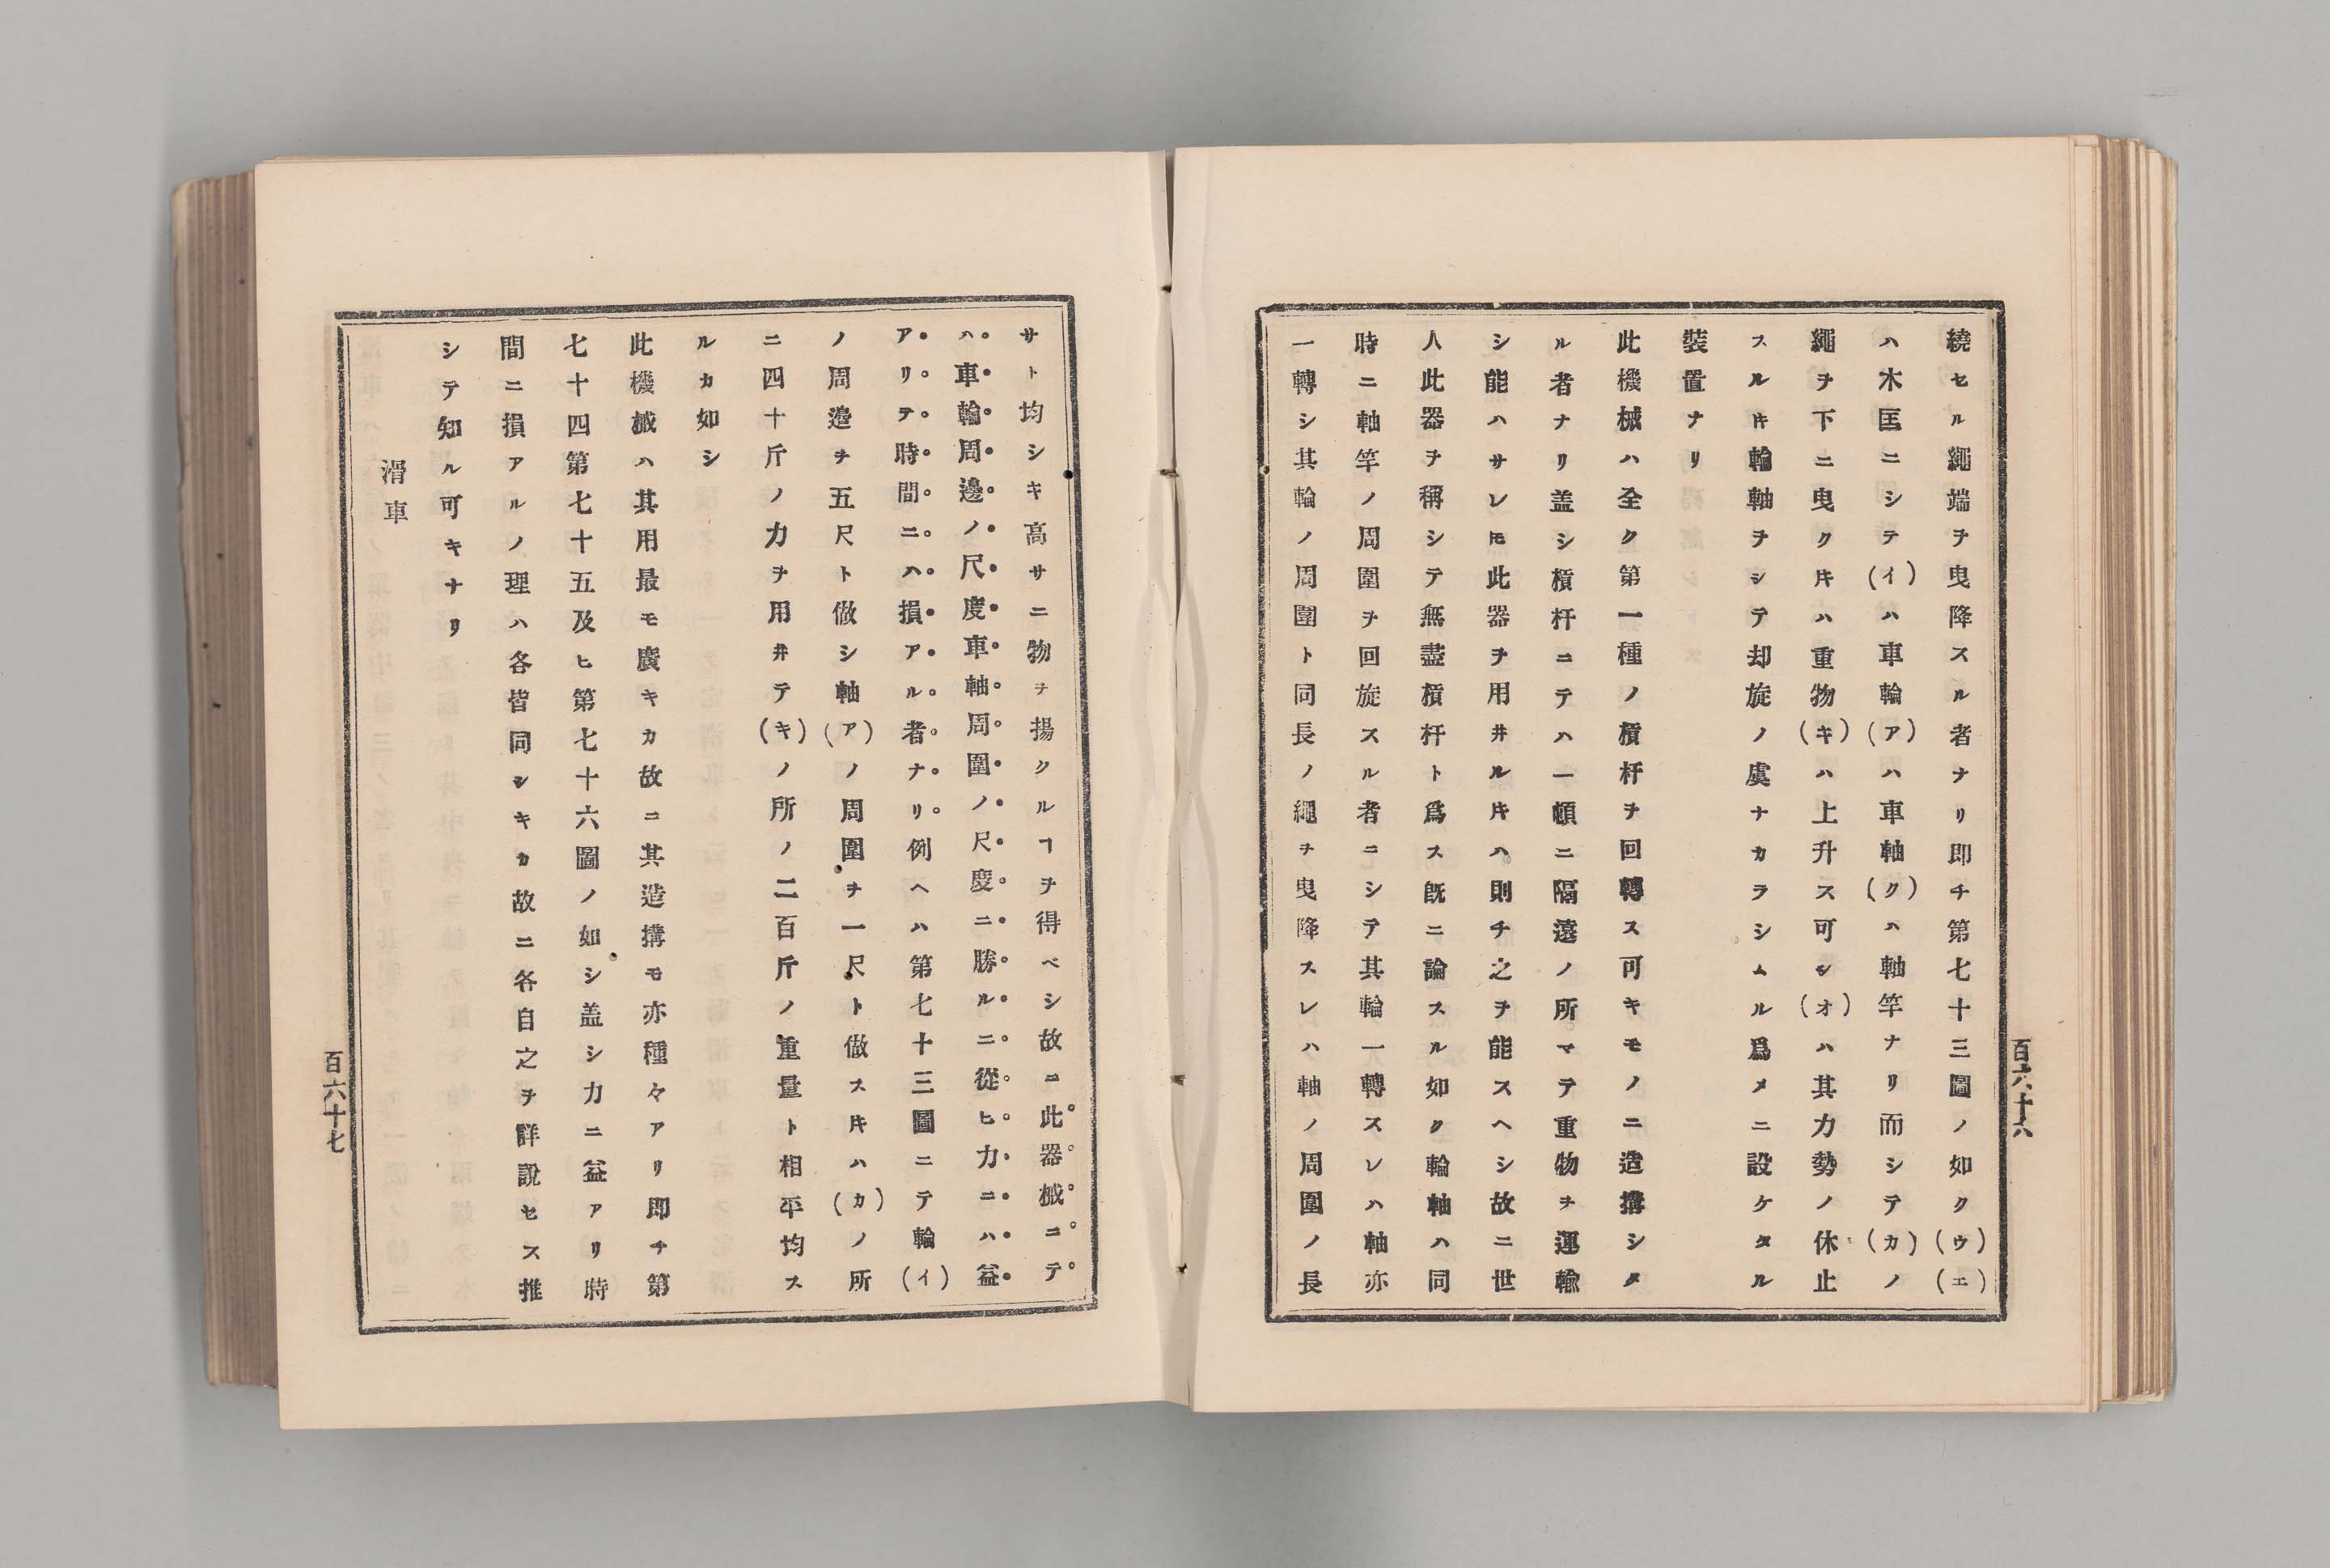 繞セル繩端ヲ曳降スル者ナリ即チ第七十三圖ノ如ク(ウ)(エ)
ハ木匡ニシテ(イ)ハ車輪(ア)ハ車軸(ク)ハ軸竿ナリ而シテ(カ)ノ
繩ヲ下ニ曳ク𪜈ハ重物(キ)ハ上升ス可シ(オ)ハ其力勢ノ休止
スル𪜈輪軸ヲシテ却旋ノ虞ナカラシムル爲メニ設ケタル
裝置ナリ
此機械ハ全ク第一種ノ槓杆ヲ回轉ス可キモノニ造搆シタ
ル者ナリ盖シ槓杆ニテハ一頓ニ隔遠ノ所マテ重物ヲ運輸
シ能ハサレ𪜈此器ヲ用井ル𪜈ハ則チ之ヲ能スヘシ故ニ世
人此器ヲ稱シテ無盡槓杆ト爲ス既ニ論スル如ク輪軸ハ同
時ニ軸竿ノ周圍ヲ回旋スル者ニシテ其輪一轉スレハ軸亦
一轉シ其輪ノ周圍ト同長ノ繩ヲ曳降スレハ軸ノ周圍ノ長
百六十六
サト均シキ高サニ物ヲ揚クルヿヲ得ベシ故ニ此器械ニテ
ハ車輪周邊ノ尺度車軸周圍ノ尺度ニ勝ルニ從ヒ力ニハ益
アリテ時間ニハ損アル者ナリ例ヘハ第七十三圖ニテ輪(イ)
ノ周邊ヲ五尺ト倣シ軸(ア)ノ周圍ヲ一尺ト倣ス𪜈ハ(カ)ノ所
ニ四十斤ノ力ヲ用井テ(キ)ノ所ノ二百斤ノ重量ト相平均ス
ルカ如シ
此機械ハ其用最モ廣キカ故ニ其造搆モ亦種々アリ即チ第
七十四第七十五及ヒ第七十六圖ノ如シ盖シ力ニ益アリ時
間ニ損アルノ理ハ各皆同シキカ故ニ各自之ヲ詳說セス推
シテ知ル可キナリ
滑車
百六十七